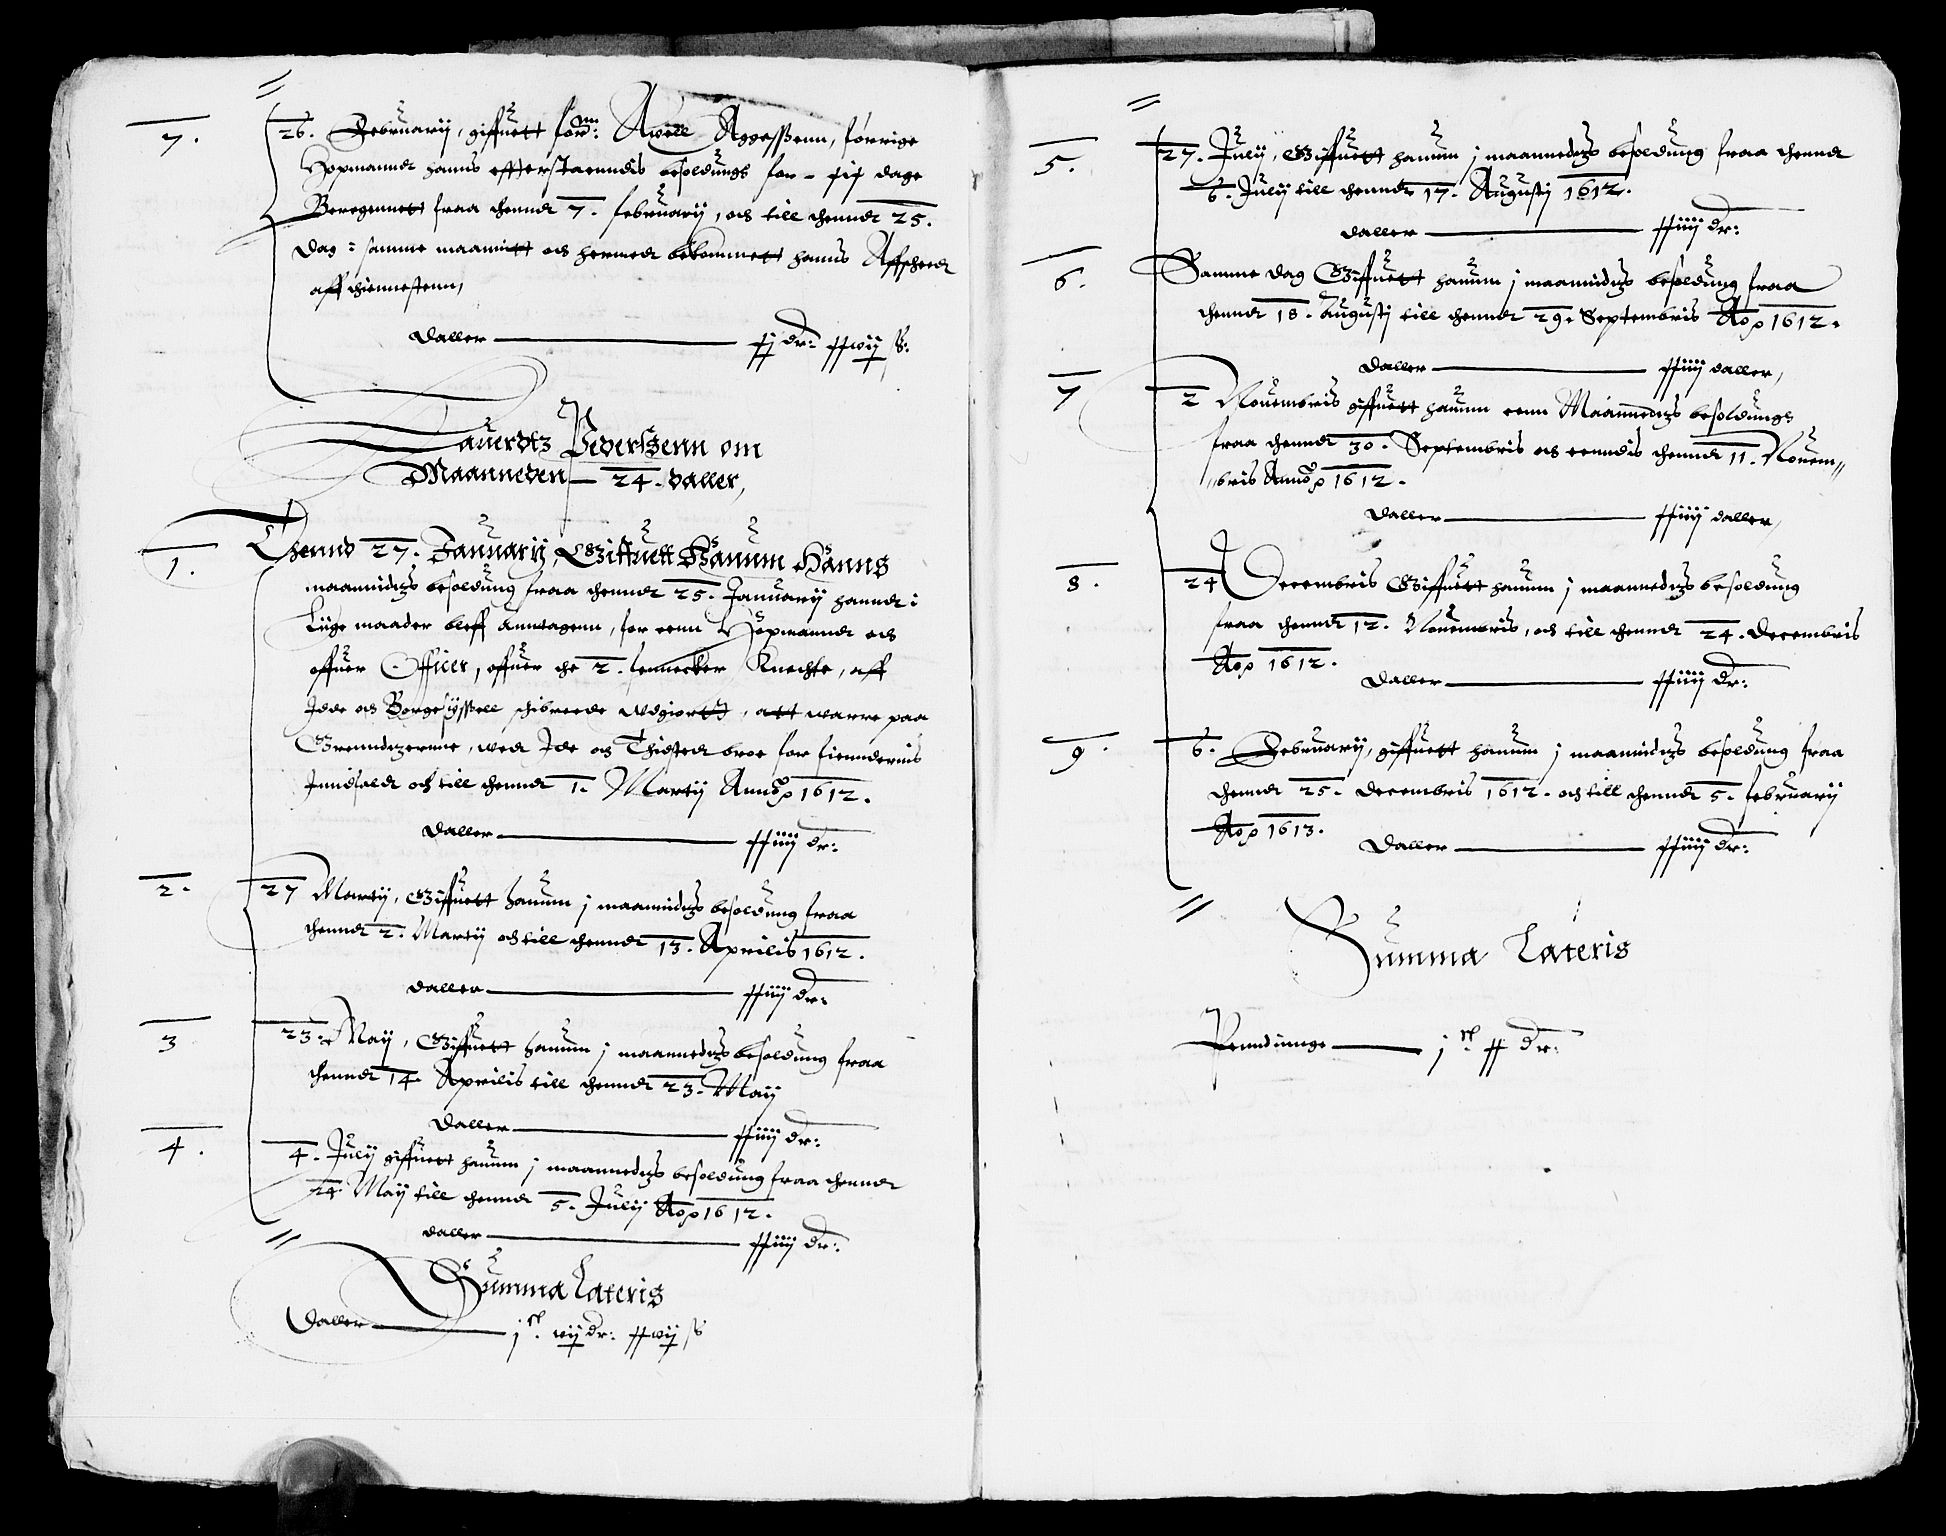 7. 26. Februarij, giffuett forn: Axell Aggessßenn, forrige
Hopmandt hanns effterstaenndis besoldungs for - xix dage
Beregennett fraa thenndt 7. februarij, och till thenndt 25.
dag: samme maannitt och hermedt bekommett hanns Affscheedt
aff thiennestenn,
daller xv dr: xxvij ß:
Lauerdtz Pederßenn om
Maanneden 24. daller,
1. Thennd 27. Januarij, Giffuett Hanum Hanns
maannidtzs besoldung fraa thenndt 25. Januarij hanndt i
Liige maader bleff Anntagenn, for eenn Hopmanndt och
offuer Officer, offuer the 2. fennecker Knechte, aff
Idde och Borgesyssell schibreede vdgiortt, att warre paa
Grenndtzerne, wed Ide och Thistedt broe for fienndernis
Inndfaldt och till thenndt 1. Martij Anno 1612.
daller xxiiij dr:
2. 27 Martij, Giffuett hanum j maannidtzs besoldung fraa
thenndt 2. Martij och till thenndt 13. Aprilis 1612.
daller xxiiij dr:
3 23. Maij, Giffuett hanum j maannedtzs besoldung fraa
thenndt 14. Aprilis till thenndt 23. Maij
daller xxiiij dr:
4. 4. Julij giffuett hanum j maannedtzs besoldung fraa thenndt
24. Maij till thenndt 5. Julij Ao 1612.
daller xxiiij dr:
Summa Lateris
Daller jc. xij dr: xxvij ß
5. 27. Julij, Giffuett hanum j maannedtzs besoldung fraa thenndt
6. Julij till thenndt 17. Augustij 1612.
daller xxiiij dr:
6. Samme dag Giffuett hanum j maannidtzs besoldung fraa
thenndt 18. Augustij till thenndt 29. Septembris Ao 1612.
daller xxiiij daller,
7 2 Nouembris giffuett hanum eenn Maannedtzs besoldungs
fraa thenndt 30. Septembris och enndis thenndt 11. Nouem„
„bris Anno 1612.
daller xxiiij daller,
8. 24 Decembris Giffuett hanum j maannedtzs besoldung
fraa thenndt 12. Nouembris, och till thenndt 24. Decembris
Ao 1612.
daller xxiiij dr:
9. 6. Februarij, giffuett hanum j maannidtzs besoldung fraa
thenndt 25. Decembris 1612. och till thenndt 5. februarij
Ao 1613.
Daller xxiiij dr:
Summa Lateris
Penndinnge jc. xx dr: